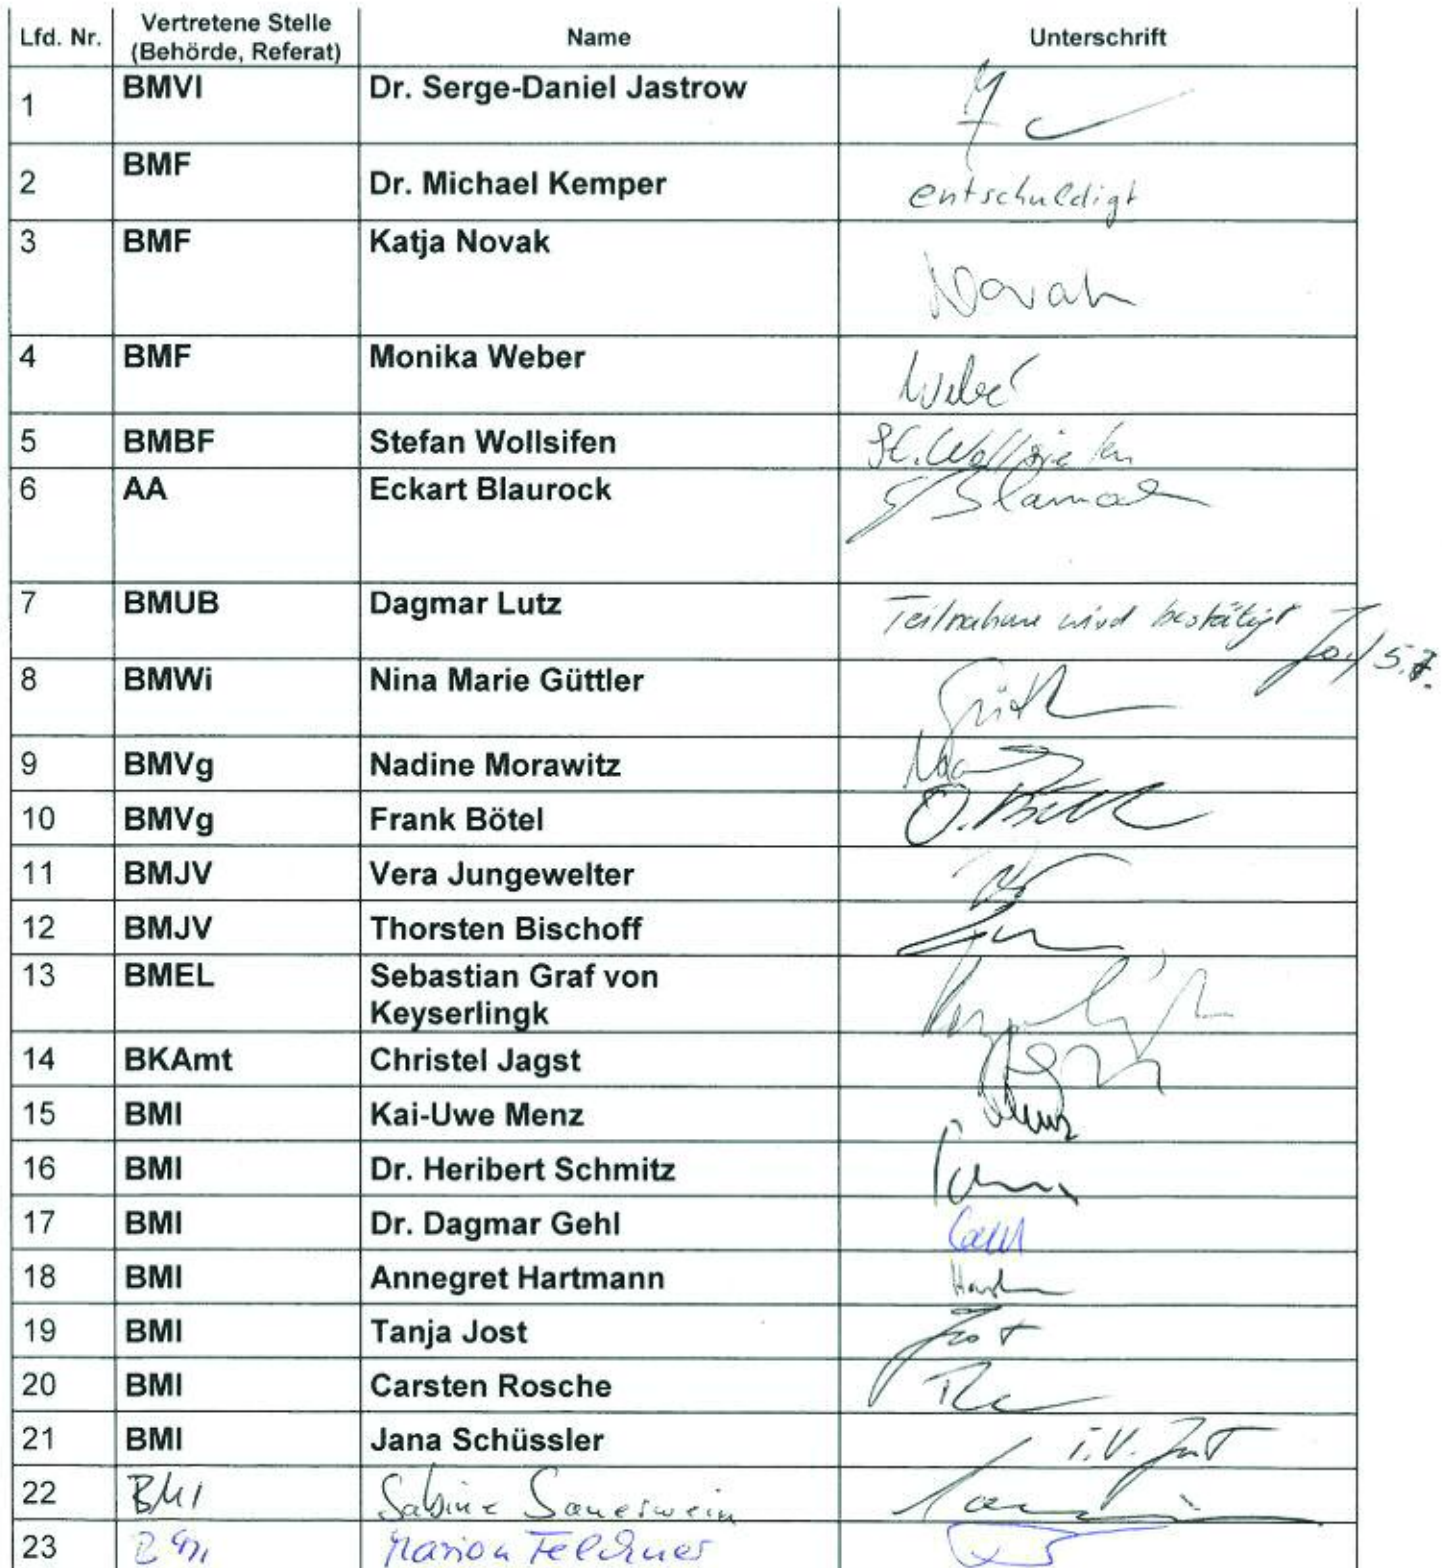 Lfd. Nr. Vertretene Stelle (Behörde, Referat) Name Unterschrift
1 BMVI Dr. Serge-Daniel Jastrow
2 BMF Dr. Michael Kemper entschuldigt
3 BMF Katja Novak Novak
4 BMF Monika Weber Weber
5 BMBF Stefan Wollsifen St. Wollsifen
6 AA Eckart Blaurock Blaurock
7 BMUB Dagmar Lutz Teilnahme wird bestätigt 5.7.
8 BMWi Nina Marie Güttler
9 BMVg Nadine Morawitz
10 BMVg Frank Bötel
11 BMJV Vera Jungewelter
12 BMJV Thorsten Bischoff
13 BMEL Sebastian Graf von
Keyserlingk
14 BKAmt Christel Jagst
15 BMI Kai-Uwe Menz Menz
16 BMI Dr. Heribert Schmitz
17 BMI Dr. Dagmar Gehl Gehl
18 BMI Annegret Hartmann
19 BMI Tanja Jost Jost
20 BMI Carsten Rosche
21 BMI Jana Schüssler i.V. Jost
22 BMI Sabine Sauerwein
23 BMI Marion Felchner